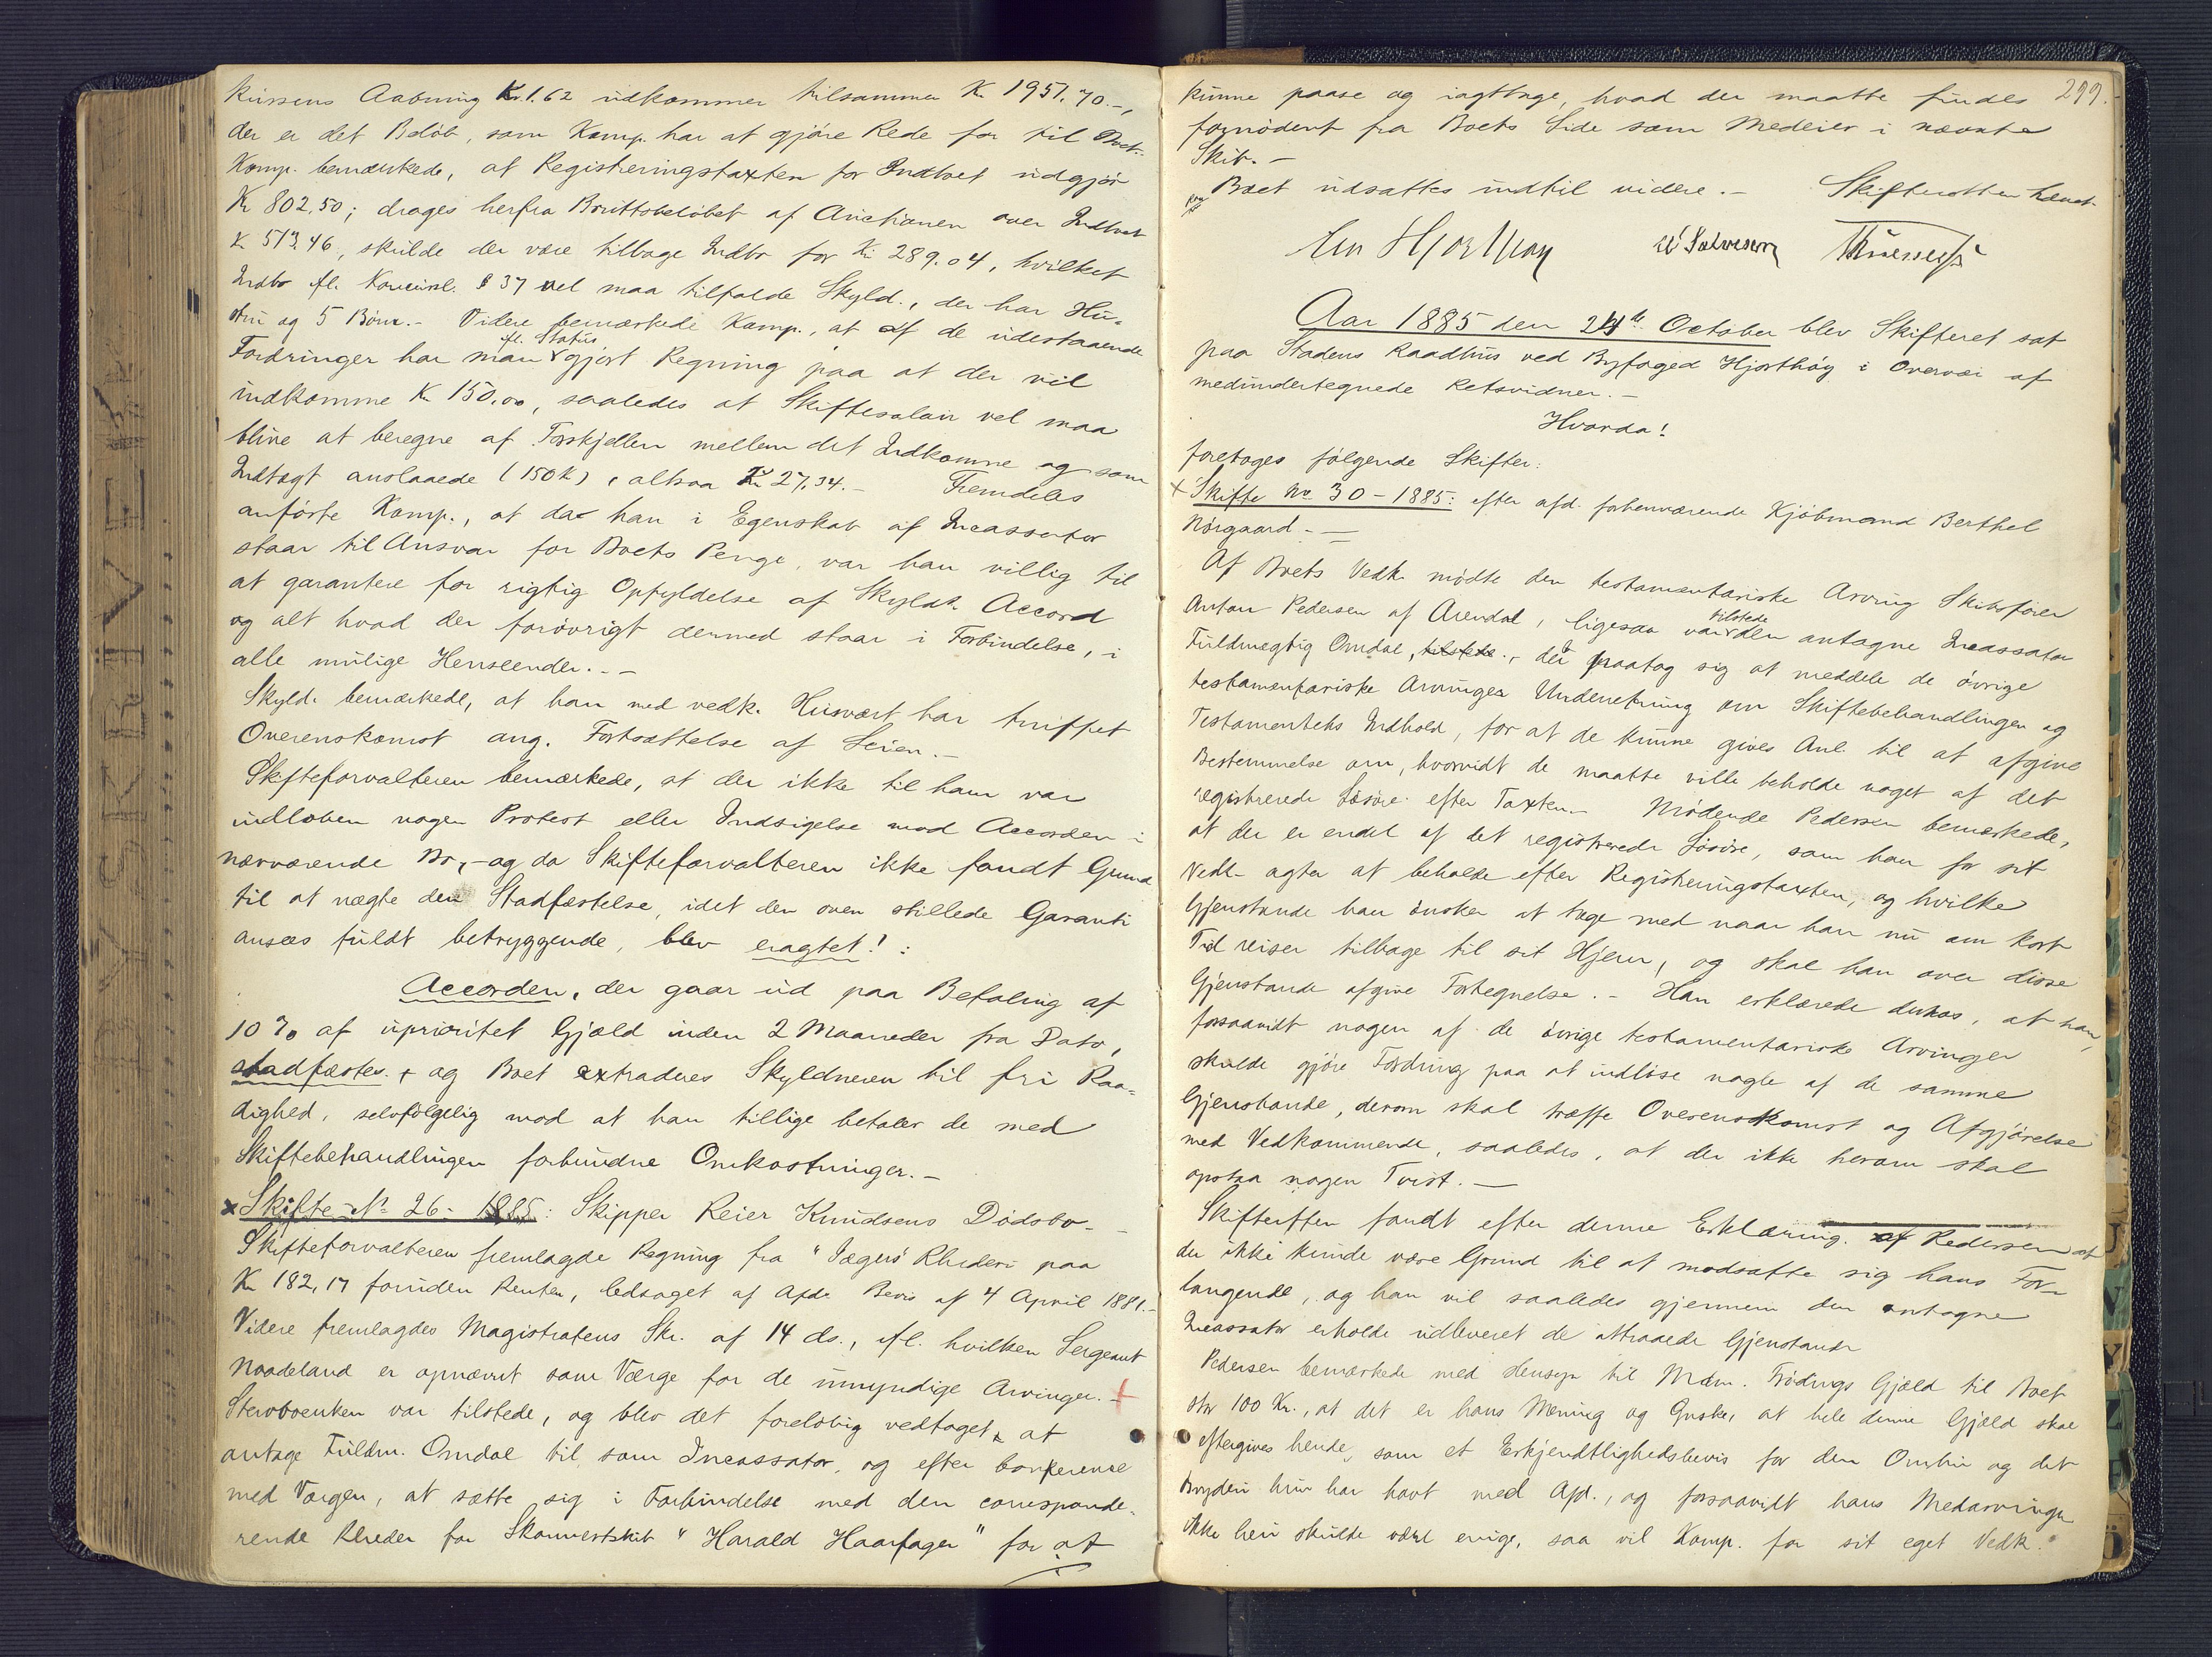 kursens Aabning Kr. 1.62 udkommer tilsammen K. 1951,70.–,
der er det Beløb, som Komp. har at gjöre Rede for til Boet.
Komp. bemærkede, at Registreringstaxten for Indboet udgjör
K 802,50; drages herfra Bruttobelöbet af Auctionen over Indboet
K 513.46, skulde der være tilbage Indbo for K. 289.04, hvilket
Indbo ifl. Konkursl. § 37 vel maa tilfalde Skyld., der har Hu-
stru og 5 Börn.– Videre bemærkede Komp., at af de udestaaende
Fordringer har man ifl. Status gjort Regning paa at der vil
indkomme K. 150.00, saaledes at Skiftesalair vel maa
blive at beregne af Forskjellen mellem det Indkomne og som
Indtægt anslaaede (150 K), altsaa K 27,34.– Fremdeles
anförte Komp., at da han i Egenskab af Incassator
staar til Ansvar for Boets Penge, var han villig til
at garantere for rigtig Opfyldelse af Skylds. Accord
og alt hvad der forövrigt dermed staar i Forbindelse, i
alle mulige Henseender.–
Skyld. bemærkede, at han med vedk. Husvært har truffet
Overenskomst ang. Fortsættelse af Leien.–
Skifteforvalteren bemærkede, at der ikke til ham var
indloben nogen Protest eller Indsigelse mod Accorden i
nærværende Bo,– og da Skifteforvalteren ikke fandt Grund
til at nægte den Stadfæstelse, idet den oven stillede Garanti
ansees fuldt betryggende, blev eragtet! :
Accorden, der gaar ud paa Betaling af
10 % af uprioritet Gjæld inden 2 Maaneder fra Dato,
stadfæstes. + og Boet extraderes Skyldneren til fri Raa-
dighed, selvfölgelig mod at han tillige betaler de med
Skiftebehandlingen forbundne Omkostninger.–
x Skifte No 26– 1885: Skipper Reier Knudsens Dödsbo.–
Skifteforvalteren fremlagde Regning fra "Jægers" Rhederi paa
K 182,17 foruden Renter, ledsaget af Afdö. Bevis af 4 April 1881.–
Videre fremlagdes Magistratens Skr. af 14 ds., ifl. hvilken Sergeant
Naadeland er opnævnt som Værge for de umyndige Arvinger.–
Stervboenken var tilstede, og blev det foreløbig vedtaget, at
antage Fuldm. Omdal til, som Incassator, og efter Conference
med Værgen, at sætte sig i Forbindelse med den corresponde-
rende Rheder for Skonnertskib "Harald Haarfager" for at
299.
kunne paase og iagttage, hvad der maatte findes
fornödent fra Boets Side som Medeier i nævnte
Skib.–
Boet udsattes indtil videre.– Skifteretten hævet
Hjorthøy Salvesen
Aar 1885 den 24de October blev Skifteret sat
paa Stadens Raadhus ved Byfoged Hjorthöy i Overvær af
medundertegnede Retsvidner.–
Hvorda!
foretoges fölgende Skifter:
x Skifte No 30–1885: efter afd. forhenværende Kjöbmand Berthel
Nörgaard.–
Af Boets Vedk. mödte den testamentariske Arving Skibsförer
Anton Pedersen af Arendal, ligesaa var tilstede den antagne Incassator
Fuldmægtig Omdal, tilstede.– der paatog sig at meddele de övrige
testamentariske Arvinger Underretning om Skiftebehandlingen og
Testamentets Indhold, for at de kunne gives Anl. til at afgive
Bestemmelse om, hvorvidt de maatte ville beholde noget af det
registrerede Lösöre efter Taxten.– Mödende Pedersen bemærkede,
at der er endel af det registrerede Lösöre, som han for sit
Vedk. agter at beholde efter Registreringstaxten, og hvilke
Gjenstande han önsker at tage med naar han nu om kort
Tid reiser tilbage til sit Hjem, og skal han over disse
Gjenstande afgive Fortegnelse.– Han erklærede derhos, at han,
forsaavidt nogen af de övrige testamentariske Arvinger
skulde gjöre Fordring paa at indlöse nogle af de samme
Gjenstande, derom skal træffe Overenskomst og Afgjörelse
med Vedkommende, saaledes, at der ikke herom skal
opstaa nogen Tvist.–
Skifteretten fandt efter denne Erklæring af Pedersen at
der ikke kunde være Grund til at modsætte sig hans For-
langende, og han vil saaledes gjennem den antagne
Incassator erholde udleveret de attraaede Gjenstande
Pedersen bemærkede med Hensyn til Mdm. Frödings Gjæld til Boet
stor 100 Kr., at det er hans Mening og Önske, at hele denne Gjæld skal
eftergives hende, som et Erkjendtlighedsbevis for den Omhu og det
Bryderi hun har havt med Afd., og forsaavidt hans Medarvinger
ikke heri skulde være enige, saa vil Komp. for sit eget Vedk.